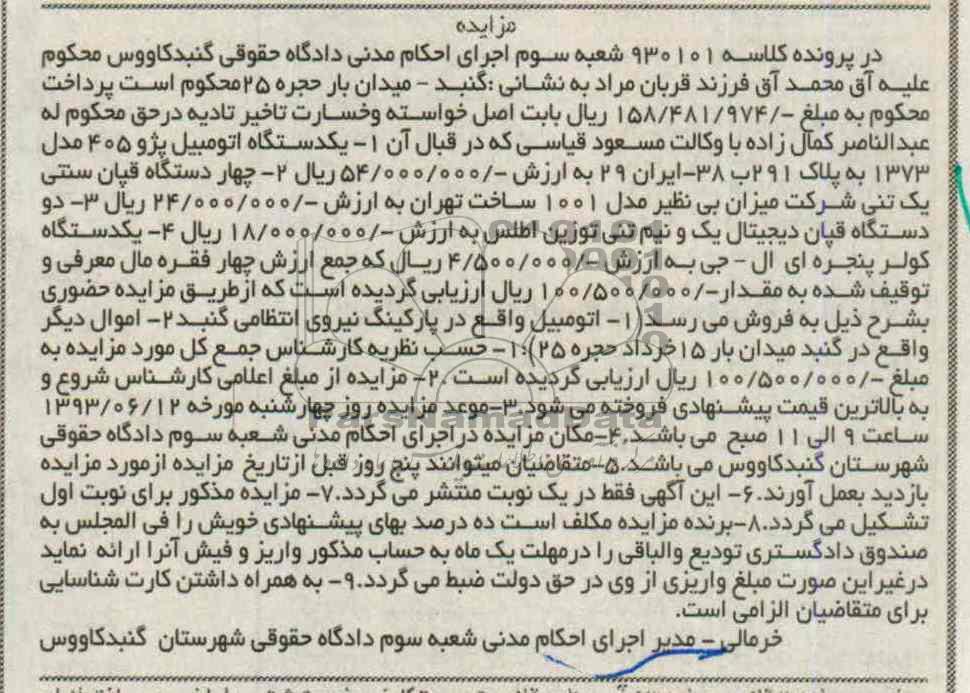 مزایده
در پرونده کلاسه ۹۳۰۱۰۱ شعبه سوم اجرای احکام مدنی دادگاه حقوقی گنبدکاووس محکوم
علیه آق محمد آق فرزند قربان مراد به نشانی :گنبد - میدان بار حجره ۲۵محکوم است پرداخت
محکوم به مبلغ -/۱۵۸/۴۸۱/۹۷۴ ریال بابت اصل خواسته وخسارت تاخیر تادیه درحق محکوم له
عبدالناصر کمال زاده با وکالت مسعود قیاسی که در قبال آن ۱- یکدستگاه اتومبیل پژو ۴۰۵ مدل
۱۳۷۳ به پلاک ۲۹۱ب ۳۸-ایران ۲۹ به ارزش -/۵۴/۰۰۰/۰۰۰ ریال ۲- چهار دستگاه قپان سنتی
یک تنی شرکت میزان بی نظیر مدل ۱۰۰۱ ساخت تهران به ارزش -/۲۴/۰۰۰/۰۰۰ ریال ۳- دو
دستگاه قپان دیجیتال یک و نیم تنی توزین اطلس به ارزش -/۱۸/۰۰۰/۰۰۰ ریال ۴- یکدستگاه
کولر پنجره ای ال - جی به ارزش -/۴/۵۰۰/۰۰۰ ریال که جمع ارزش چهار فقره مال معرفی و
توقیف شده به مقدار-/۱۰۰/۵۰۰/۰۰۰ ریال ارزیابی گردیده است که ازطریق مزایده حضوری
بشرح ذیل به فروش می رسد(۱- اتومبیل واقع در پارکینگ نیروی انتظامی گنبد۲- اموال دیگر
واقع در گنبد میدان بار ۱۵خرداد حجره ۲۵):۱- حسب نظریه کارشناس جمع کل مورد مزایده به
مبلغ -/۱۰۰/۵۰۰/۰۰۰ ریال ارزیابی گردیده است .۲- مزایده از مبلغ اعلامی کارشناس شروع و
به بالاترین قیمت پیشنهادی فروخته می شود.۳-موعد مزایده روز چهارشنبه مورخه ۱۳۹۳/۰۶/۱۲
ساعت ۹ الی ۱۱ صبح می باشد.۴-مکان مزایده دراجرای احکام مدنی شعبه سوم دادگاه حقوقی
شهرستان گنبدکاووس می باشد.۵-متقاضیان میتوانند پنج روز قبل ازتاریخ مزایده ازمورد مزایده
بازدید بعمل آورند.۶- این آگهی فقط در یک نوبت منتشر می گردد.۷- مزایده مذکور برای نوبت اول
تشکیل می گردد.۸-برنده مزایده مکلف است ده درصد بهای پیشنهادی خویش را فی المجلس به
صندوق دادگستری تودیع والباقی را درمهلت یک ماه به حساب مذکور واریز و فیش آنرا ارائه نماید
درغیراین صورت مبلغ واریزی از وی در حق دولت ضبط می گردد.۹- به همراه داشتن کارت شناسایی
برای متقاضیان الزامی است.
خرمالی - مدیر اجرای احکام مدنی شعبه سوم دادگاه حقوقی شهرستان گنبدکاووس
ParsNamadData